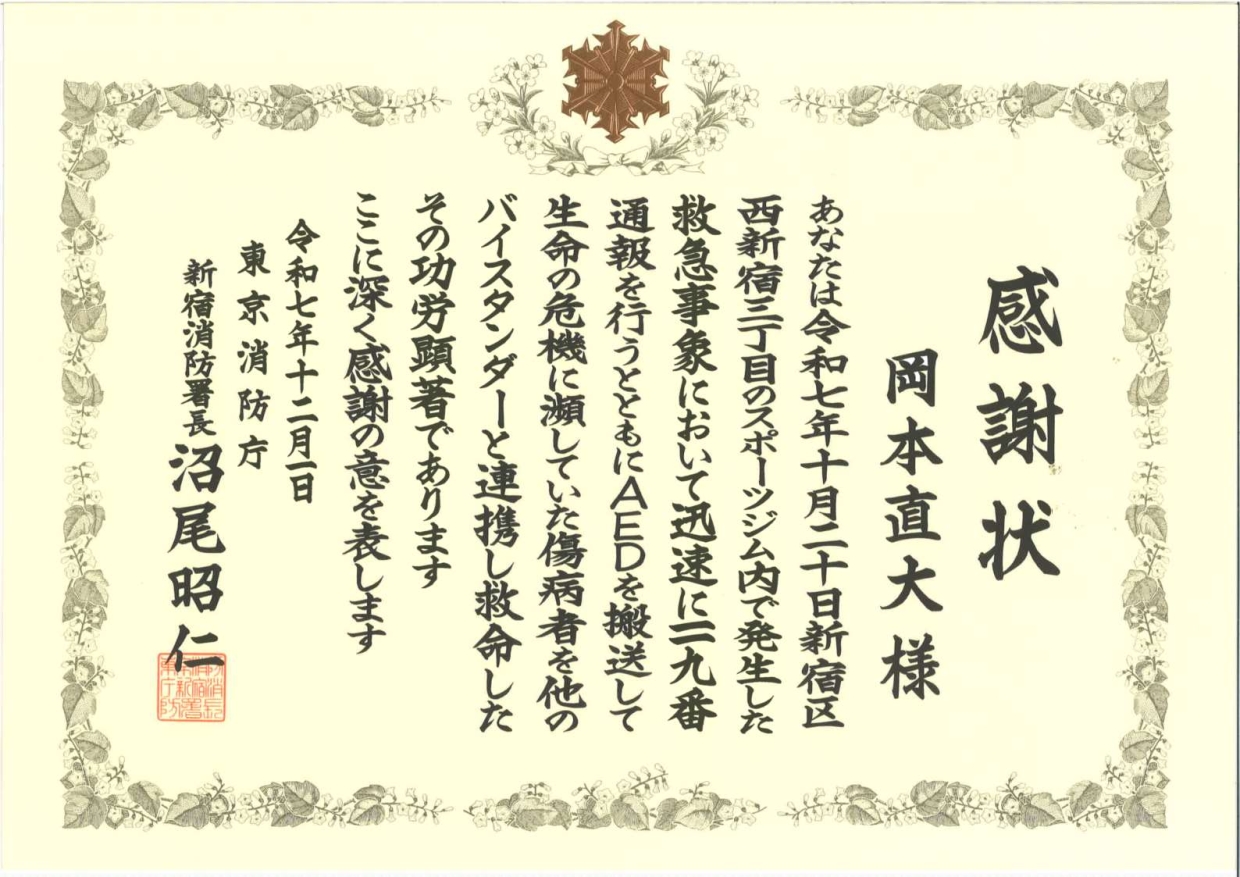 感謝状
岡本直大様
あなたは令和七年十月二十日新宿区
西新宿三丁目のスポーツジム内で発生した
救急事象において迅速に一一九番
通報を行うとともにAEDを搬送して
生命の危機に瀕していた傷病者を他の
バイスタンダーと連携し救命した
その功労顕著であります
ここに深く感謝の意を表します
令和七年十二月一日
東京消防庁
新宿消防署長 沼尾昭仁